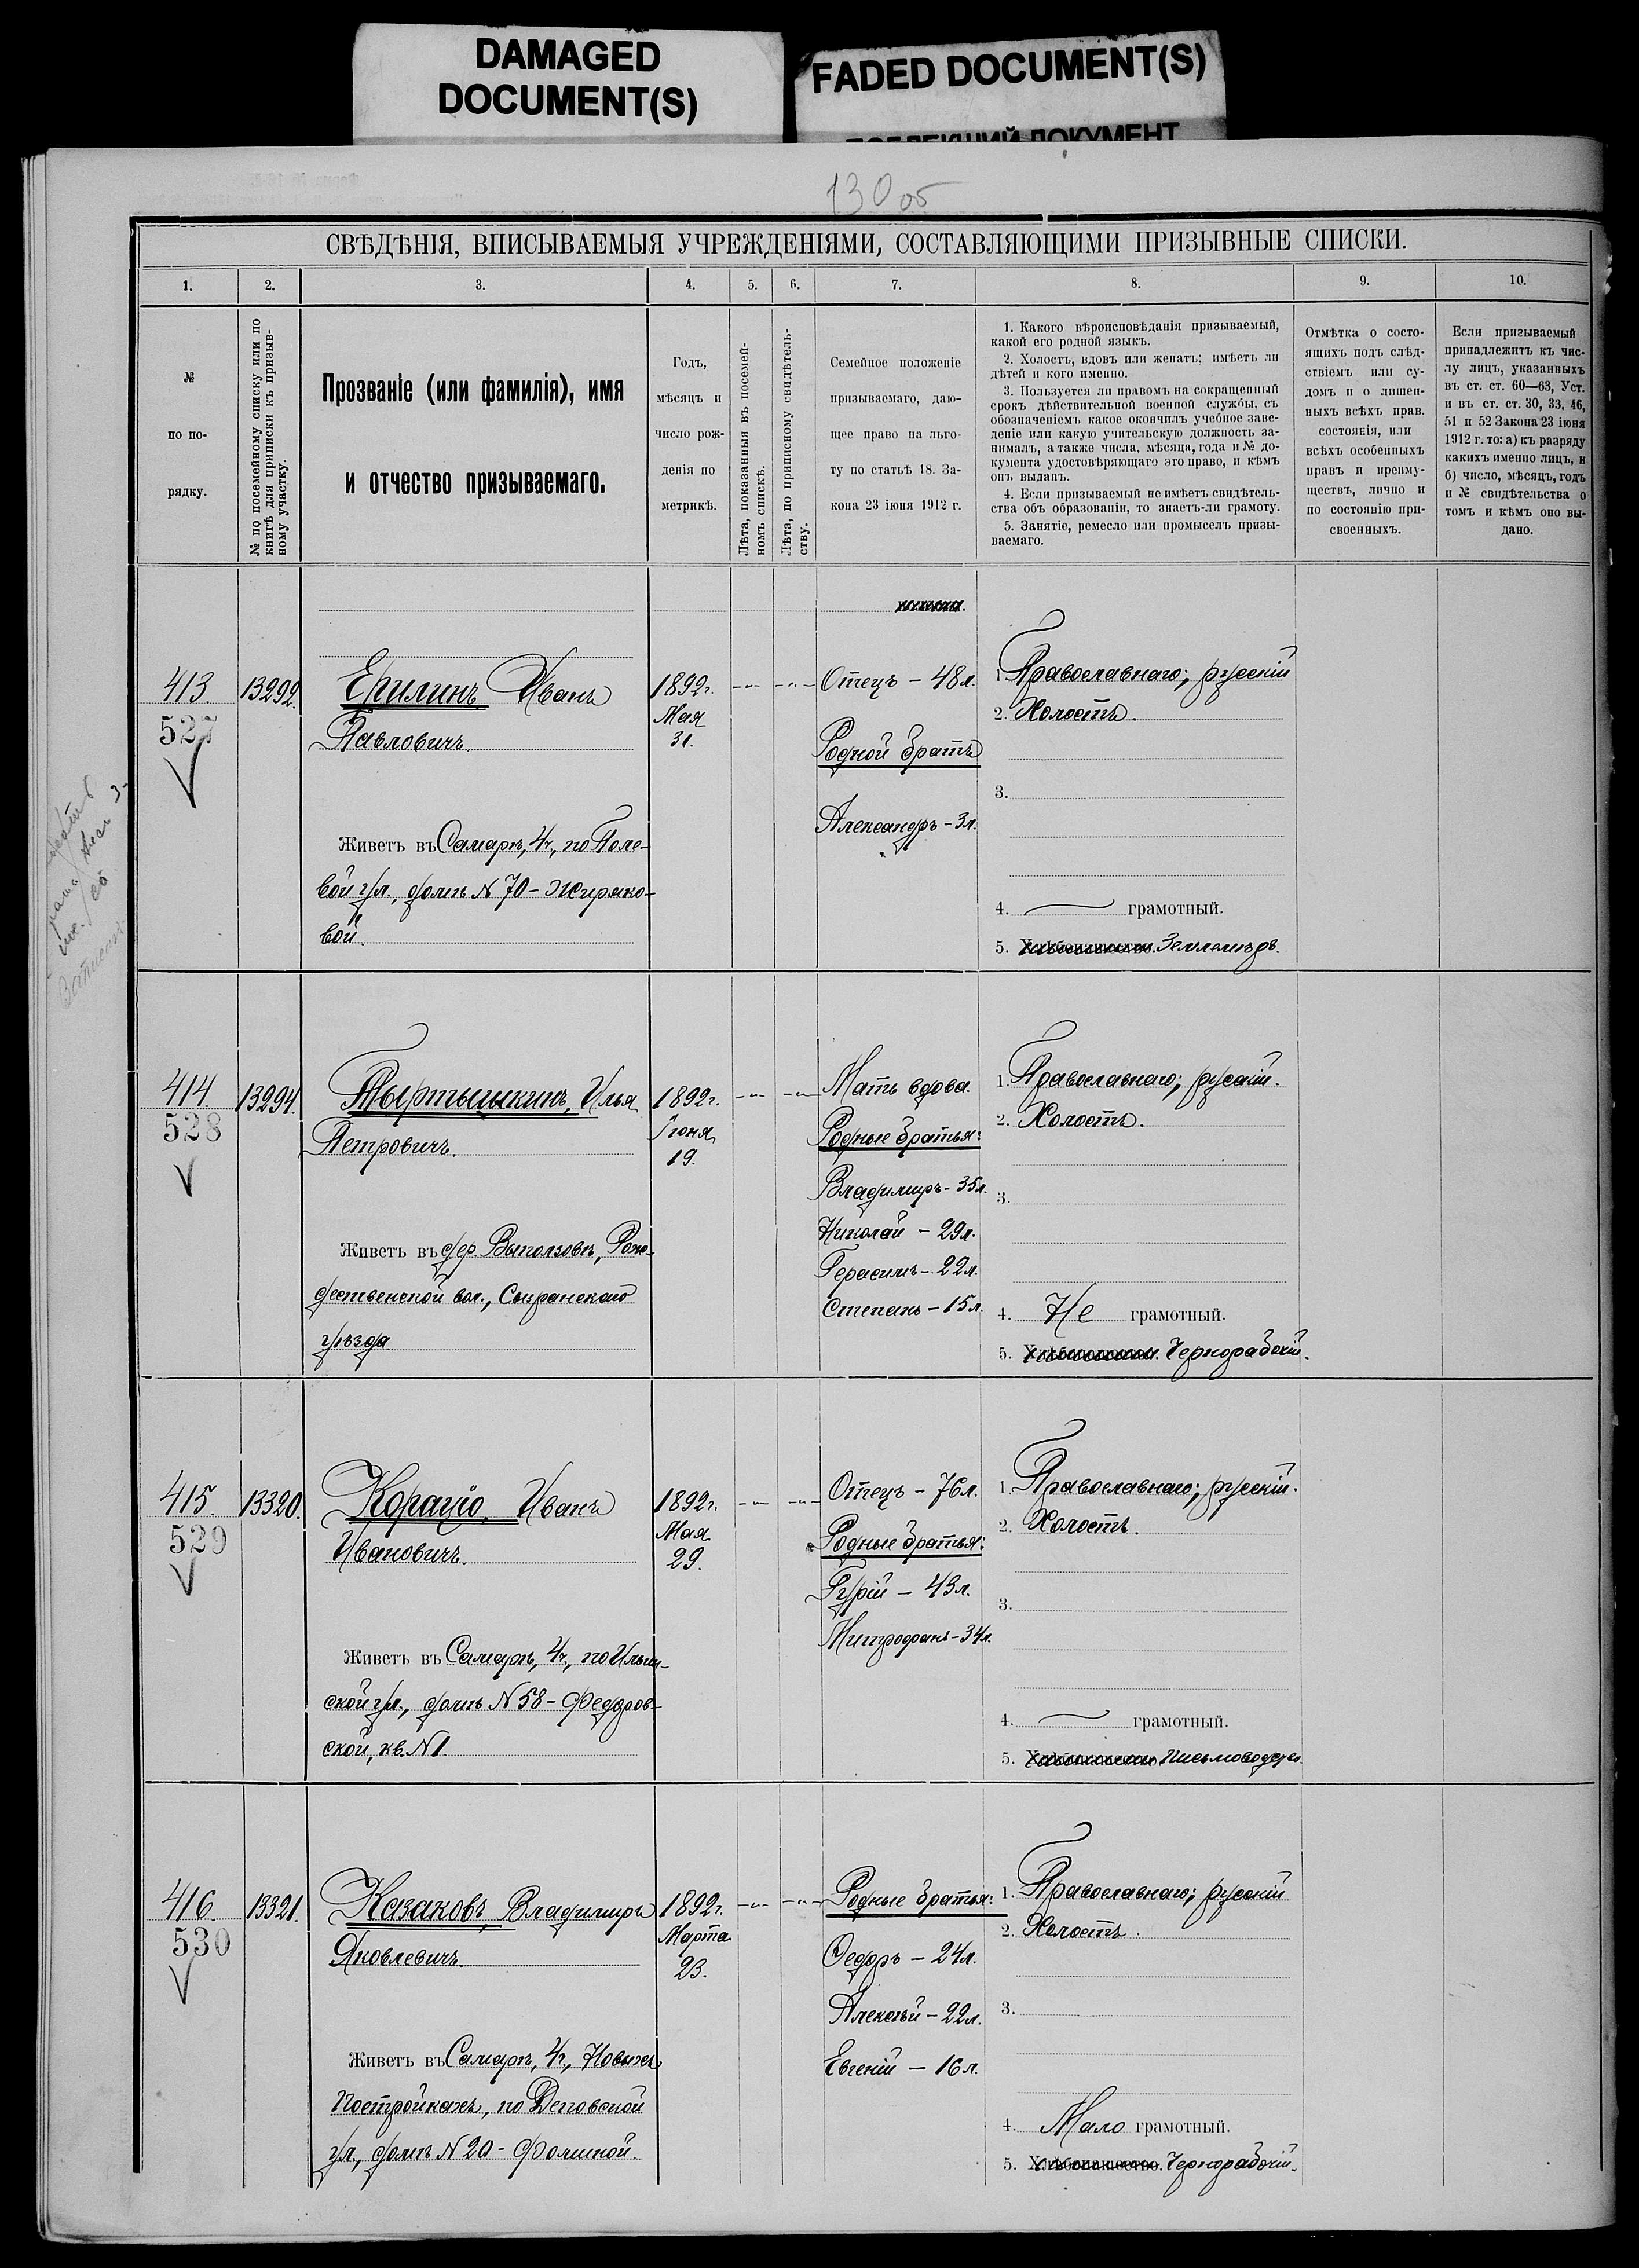 DAMAGED
DOCUMENT(S)
FADED DOCUMENT(S)
130 об
СВѢДѢНІЯ, ВПИСЫВАЕМЫЯ УЧРЕЖДЕНІЯМИ, СОСТАВЛЯЮЩИМИ ПРИЗЫВНЫЕ СПИСКИ.
1. 2. 3. 4. 5. 6. 7. 8. 9. 10.
№
по по-
рядку.
№ по посемейному списку или по
книгѣ для приписки къ призыв-
ному участку.
Прозваніе (или фамилія), имя
и отчество призываемаго.
Годъ,
мѣсяцъ и
число рож-
денія по
метрикѣ.
Лѣта, показанныя въ посемей-
номъ спискѣ.
Лѣта, по приписному свидѣтель-
ству.
Семейное положеніе
призываемаго, даю-
щее право на льго-
ту по статьѣ 18. За-
кона 23 іюня 1912 г.
1. Какого вѣроисповѣданія призываемый,
какой его родной языкъ.
2. Холостъ, вдовъ или женатъ; имѣетъ ли
дѣтей и кого именно.
3. Пользуется ли правомъ на сокращенный
срокъ дѣйствительной военной службы, съ
обозначеніемъ какое окончилъ учебное заве-
деніе или какую учительскую должность за-
нималъ, а также числа, мѣсяца, года и № до-
кумента удостовѣряющаго это право, и кѣмъ
онъ выданъ.
4. Если призываемый не имѣетъ свидѣтель-
ства объ образованіи, то знаетъ-ли грамоту.
5. Занятіе, ремесло или промыселъ призы-
ваемаго.
Отмѣтка о состо-
ящихъ подъ слѣд-
ствіемъ или су-
домъ и о лишен-
ныхъ всѣхъ прав.
состоянія, или
всѣхъ особенныхъ
правъ и преиму-
ществъ, лично и
по состоянію при-
своенныхъ.
Если призываемый
принадлежитъ къ чис-
лу лицъ, указанныхъ
въ ст. ст. 60—63, Уст.
и въ ст. ст. 30, 33, 46,
51 и 52 Закона 23 іюня
1912 г. то: а) къ разряду
какихъ именно лицъ, и
б) число, мѣсяцъ, годъ
и № свидѣтельства о
томъ и кѣмъ оно вы-
дано.
413. 13292. Ерилинъ Иванъ
527
Павловичъ.
Живетъ въ Самарѣ, 4ч., по Поле-
вой ул., домъ № 70 - Жиряко-
вой.
1892г.
Мая
31.
Отецъ - 48л.
Родной братъ
Александръ - 3л.
1. Православнаго; русскій
2. Холостъ.
3.
4. грамотный.
5. Землемѣр.
414 13294. Пыртышкинъ, Илья
528
Петровичъ.
Живетъ въ дер. Выползовѣ, Рож-
дественской вол., Сызранскаго
уѣзда
1892г.
Іюня
19.
Мать вдова.
Родные братья:
Владиміръ - 35л.
Николай - 29л.
Герасимъ - 22л.
Степанъ - 15л.
1. Православнаго; русскій.
2. Холостъ.
3.
4. Не грамотный.
5. Чернорабочій.
415. 13320. Корацiо, Иванъ
529
Ивановичъ.
Живетъ въ Самарѣ, 4ч., по Ильин-
ской ул., домъ № 58 - Федоров-
ской, кв. № 1.
1892г.
Мая
29.
Отецъ - 76л.
Родные братья:
Гурій - 43л.
Митрофанъ - 34л.
1. Православнаго; русскій.
2. Холостъ.
3.
4. грамотный.
5. Письмоводство.
416. 13321. Казаковъ, Владиміръ
530
Яковлевичъ.
Живетъ въ Самарѣ, 4ч., Новыхъ
Постройкахъ, по Деповской
ул., домъ № 20 - Фоминой.
1892г.
Марта
23.
Родные братья:
Федоръ - 24л.
Алексѣй - 22л.
Евгеній - 16л.
1. Православнаго; русскій
2. Холостъ.
3.
4. Мало грамотный.
5. Чернорабочій.